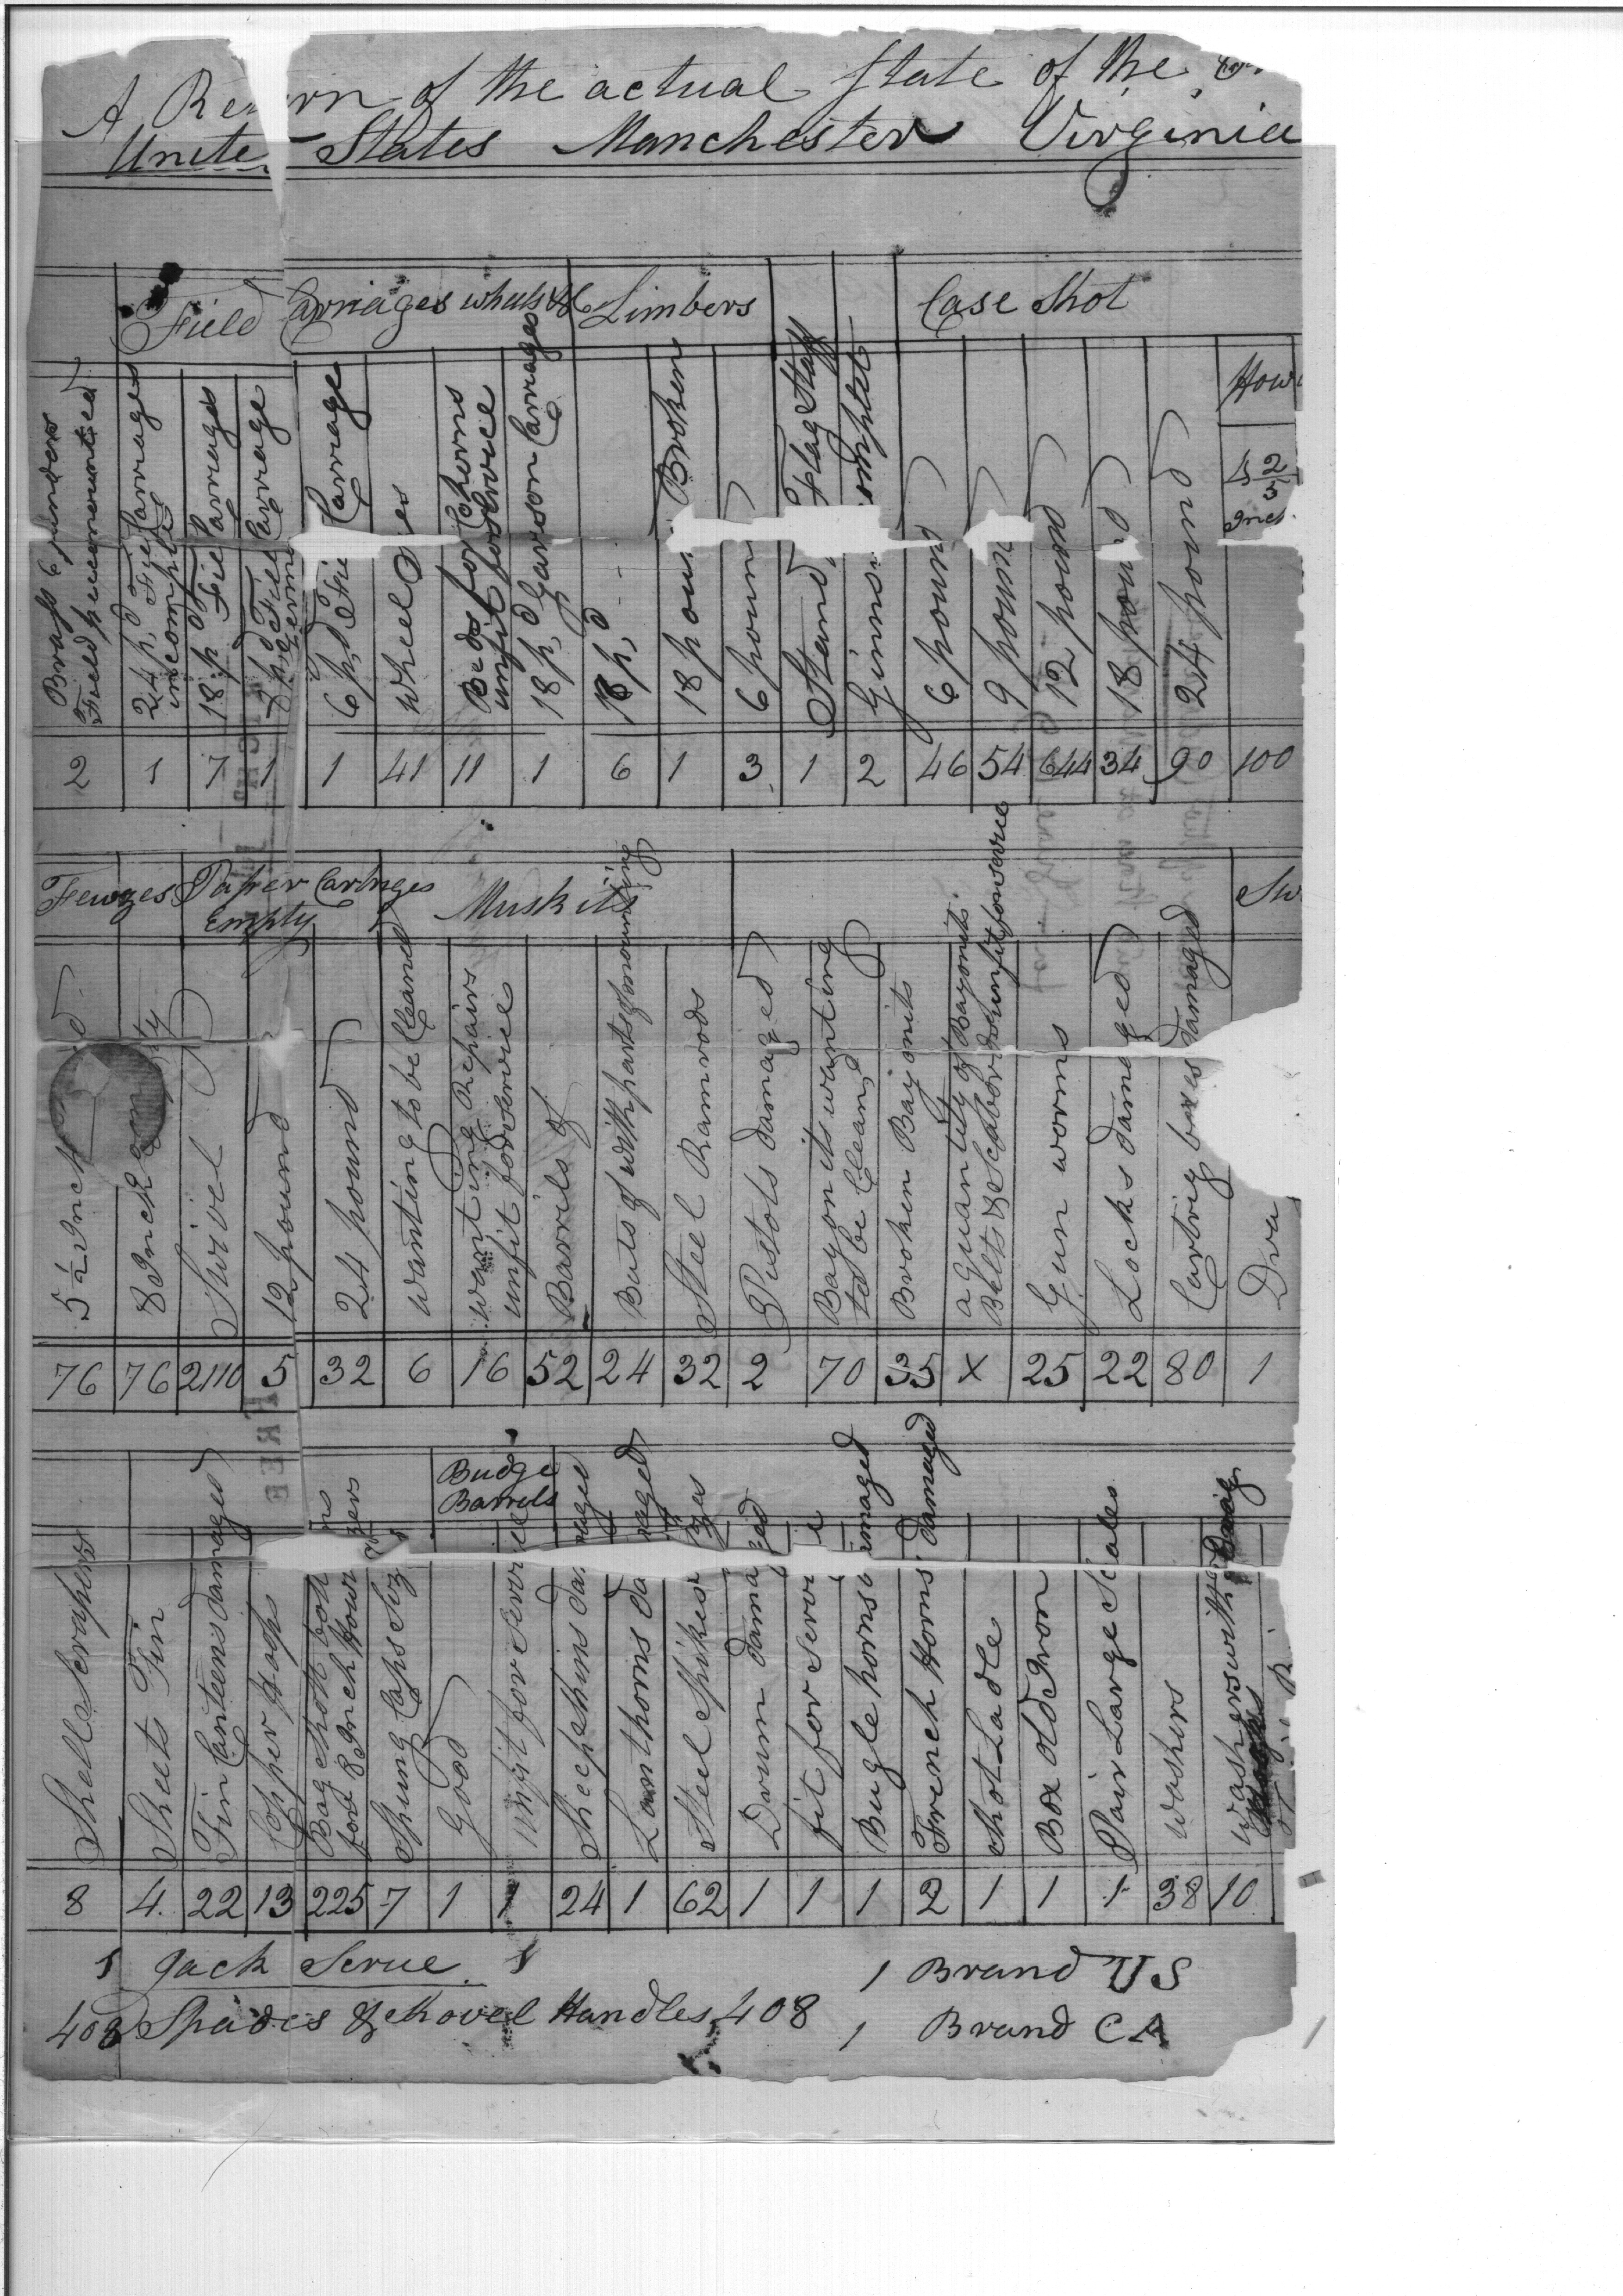 A Re rn of the actual State of the
Unite States Manchester Virginia
Field Carriages wheels &c Limbers Case Shot
How
Brass 6 pounders Field pieces mounted
24 p,d Field Carriages incomplet
18 p,d Field Carriages
p,d Field Carriage
6 p,d Fie Carriage
wheel
Beds for Cherns unfit for Service
18 p,d Garison Carrages
18 p,d
18 poun Broken
6 poun
Stand Flag Staff
Ginns omplet
6 pound
9 pound
12 pound
18 pound
24 pound
5 2/3 Inch
2 1 7 1 1 41 11 1 6 1 3 1 2 46 54 644 34 90 100
Fewzes Paper Cartriges Empty Muskits Sw
5 1/2 Inch
8 Inch empty
Swivel
12 pound
24 pound
wanting to be Cleand
wanting Repairs unfit for Service
Barrils of
Buts of with parts of mounting
Steel Ramrods
Pistols damaged
Bayonits wanting to be Cleand
Broken Bayonits
a quantity of Bayonits Belts & Scabords unfit for service
Gun worms
Locks damaged
Cartrig boxes damaged
Dra
76 76 2110 5 32 6 16 52 24 32 2 70 35 x 25 22 80 1
Budge Barrels
Shell Scrapers
Sheets Tin
Tin Canteens damaged
Copper Hoops
Bag Shott bott ns for 8 Inch Howi zers
Spung Caps Siz
Good
unfit for Service
Sheepskins da maged
Lanthorns da maged
Steel Spikes
Drum dama ged
fit for Servi e
Bugle horns damaged
French Horns Damaged
Shot Ladle
Box old Iron
Pair Large Scales
washers
washers with
8 4. 22 13 225 7 1 1 24 1 62 1 1 1 2 1 1 1 38 10
1 Jack Scrue. 1 1 Brand US
408 Spades & Shovel Handles 408 1 Brand CA